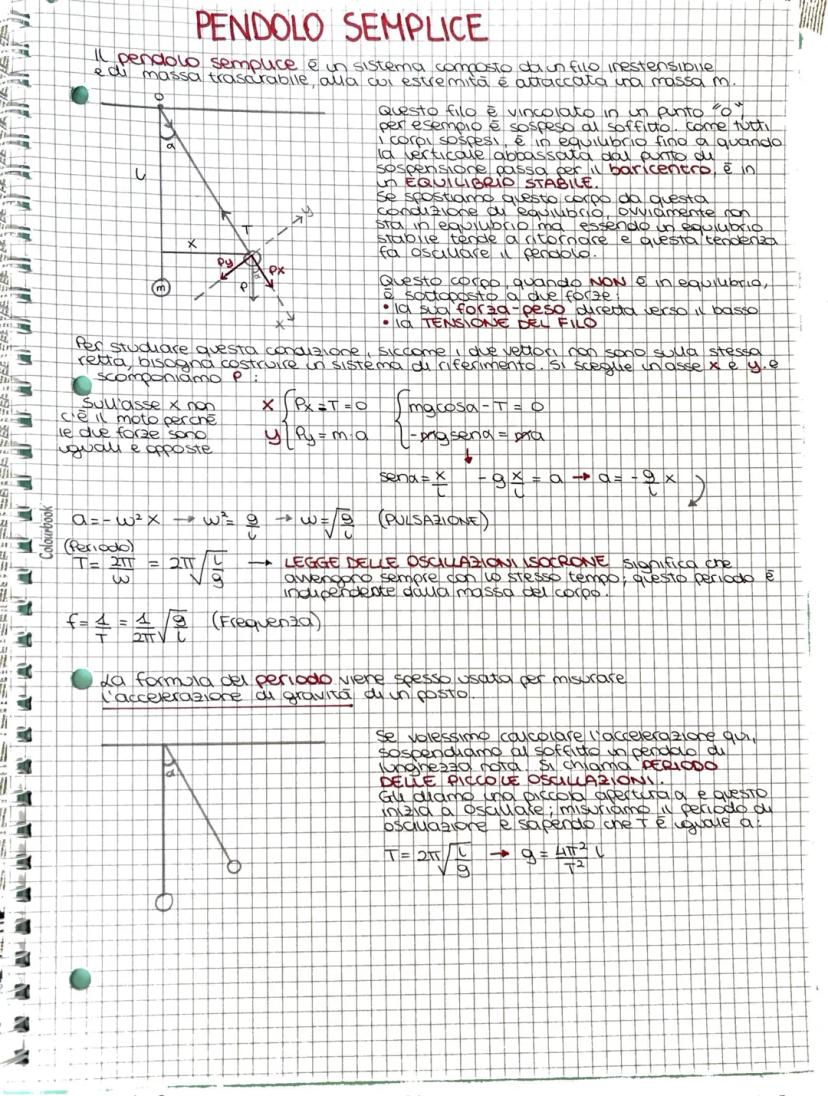 PENDOLO SEMPLICE
Il pendolo semplice è un sistema composto da un filo inestensibile
e di massa trascurabile, alla cui estremità è attaccata una massa m.
O
α
L
T
y
x
Py
Px
α
P
m
x
Questo filo è vincolato in un punto "O"
per esempio è sospeso al soffitto. Come tutti
i corpi sospesi, è in equilibrio fino a quando
la verticale abbassata dal punto di
sospensione passa per il baricentro, è in
un EQUILIBRIO STABILE.
Se spostiamo questo corpo da questa
condizione di equilibrio, ovviamente non
sta in equilibrio ma essendo un equilibrio
stabile tende a ritornare e questa tendenza
fa oscillare il pendolo.
Questo corpo, quando NON è in equilibrio,
è sottoposto a due forze:
• la sua forza-peso diretta verso il basso
• la TENSIONE DEL FILO
Per studiare questa condizione, siccome i due vettori non sono sulla stessa
retta, bisogna costruire un sistema di riferimento. Si sceglie un asse x e y e
scomponiamo P:
Sull'asse x non
c'è il moto perché
le due forze sono
uguali e opposte
x { Px = T = 0
y { Py = m·a
{ mgcosα - T = 0
{ -mgsenα = ma
senα = x/L   -g x/L = a → a = -g/L x
a = -ω²x → ω² = g/L → ω = √g/L (PULSAZIONE)
(Periodo)
T = 2π/ω = 2π√L/g → LEGGE DELLE OSCILLAZIONI ISOCRONE significa che
avvengono sempre con lo stesso tempo; questo periodo è
indipendente dalla massa del corpo.
f = 1/T = 1/2π √g/L (Frequenza)
La formula del periodo viene spesso usata per misurare
l'accelerazione di gravità di un posto.
α
Se volessimo calcolare l'accelerazione qui,
sospendiamo al soffitto un pendolo di
lunghezza nota. Si chiama PERIODO
DELLE PICCOLE OSCILLAZIONI.
Gli diamo una piccola apertura α e questo
inizia a oscillare; misuriamo il periodo di
oscillazione e sapendo che T è uguale a:
T = 2π√L/g → g = 4π²/T² L
Colourbook